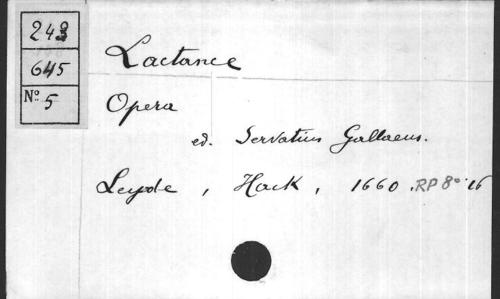 243
645
No 5
Lactance
Opera
ed. Servatius Gallaeus.
Leyde, Hack, 1660. RP 8° 16